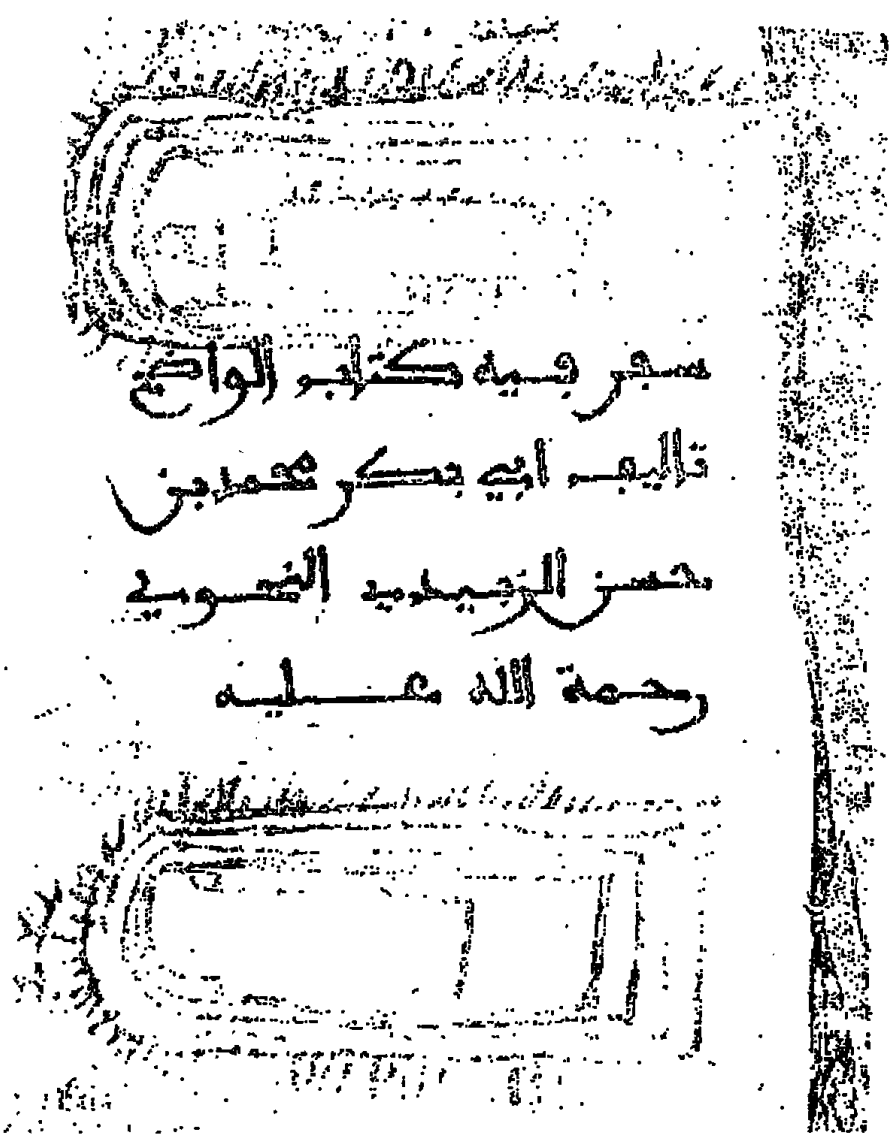 سفر فيه كتاب الواضح
تاليف ابي بكر محمد بن
حسن الزبيدي النحوي
رحمة الله عليه